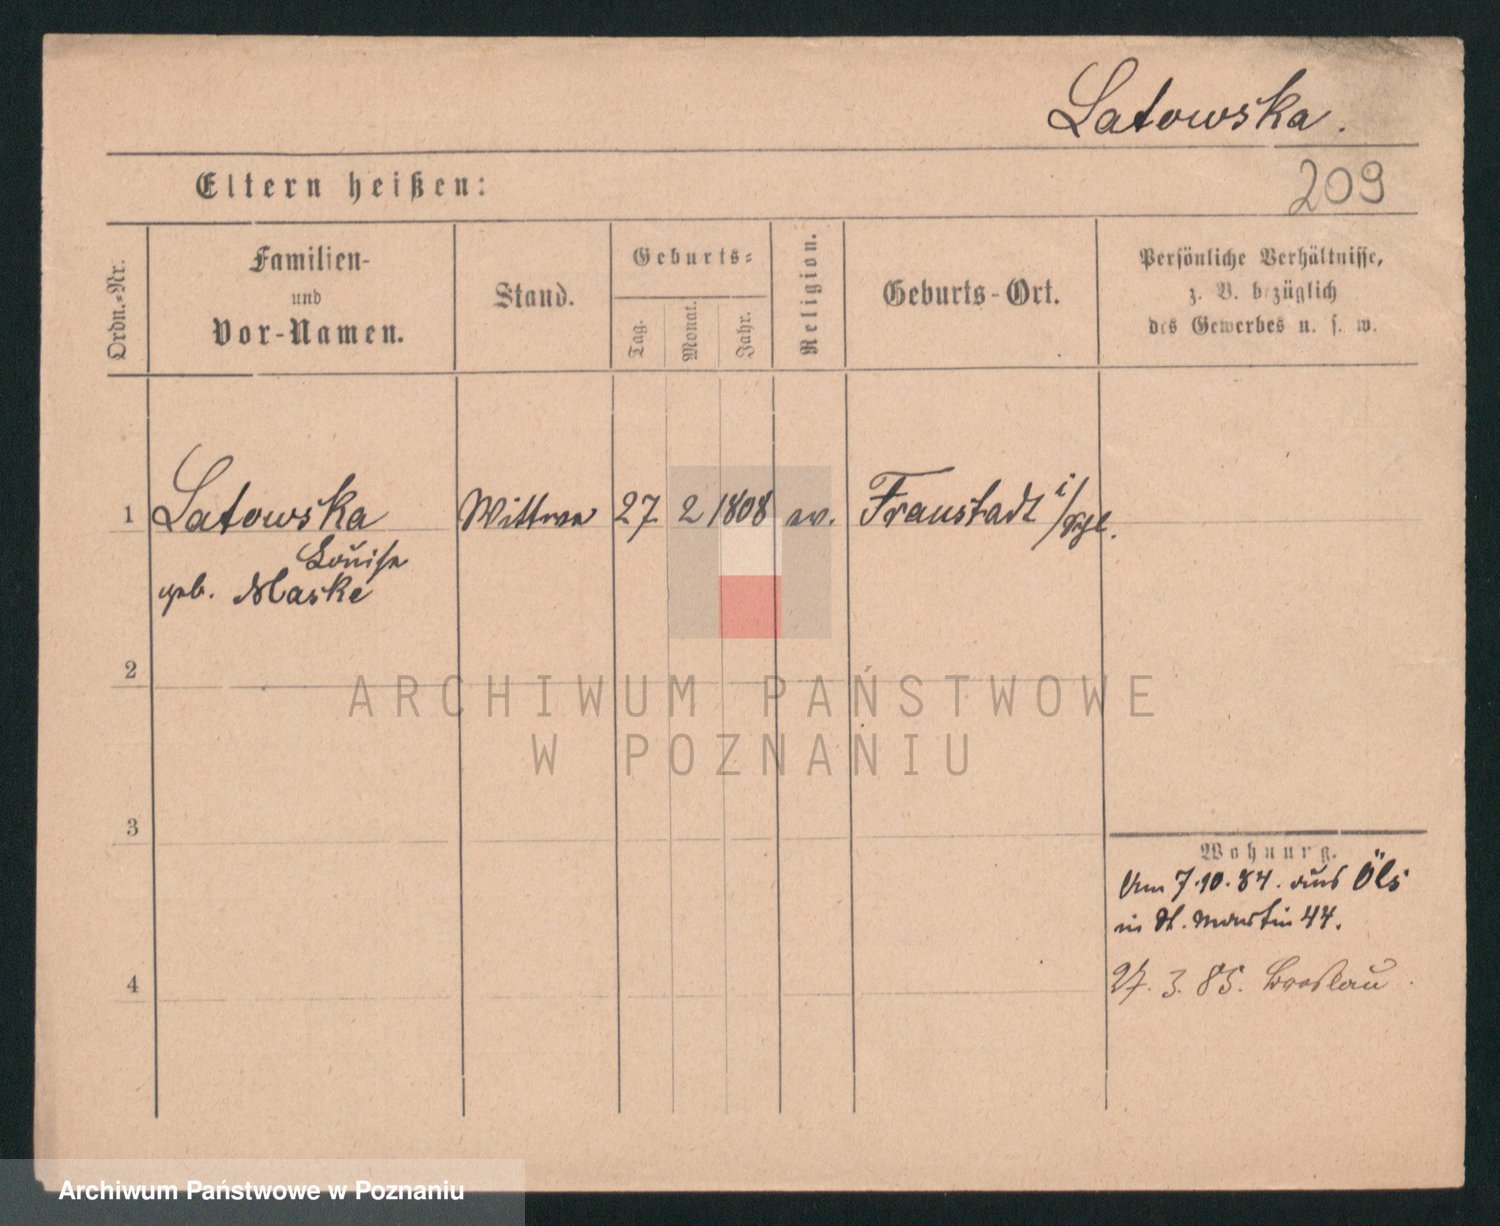 Latowska.
209
Eltern heißen:
Ordn.-Nr.
Familien-
und
Vor-Namen.
Stand.
Geburts-
Tag.
Monat.
Jahr.
Religion.
Geburts-Ort.
Persönliche Verhältnisse,
z. B. bezüglich
des Gewerbes u. s. w.
1 Latowska Wittwe 27 2 1808 ev. Fraustadt i/
Louise
geb. Maske
2
ARCHIWUM PAŃSTWOWE
W POZNANIU
3
Wohnung.
Vom 7.10.84. aus Öls
in St. Martin 44.
27. 3. 85. Breslau.
4
Archiwum Państwowe w Poznaniu